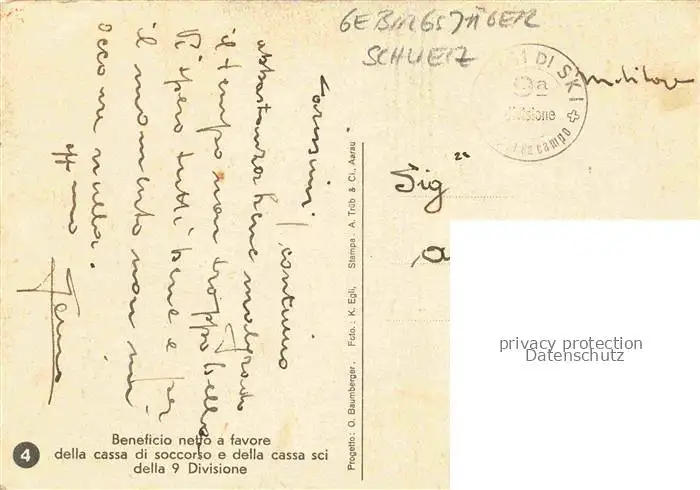 GEBIRGSJÄGER
SCHWEIZ
DI SKI
9a
Divisione
campo
Carissimi, continuo
abbastanza bene malgrado
il tempo non troppo bello
Vi spero tutti bene e per
il momento non mi
occorre nulla.
Sig
a
Progetto: O. Baumberger. Foto.: K. Egli, Stampa. A. Trüb & Ci. Aarau
4
Beneficio netto a favore
della cassa di soccorso e della cassa sci
della 9 Divisione
privacy protection
Datenschutz